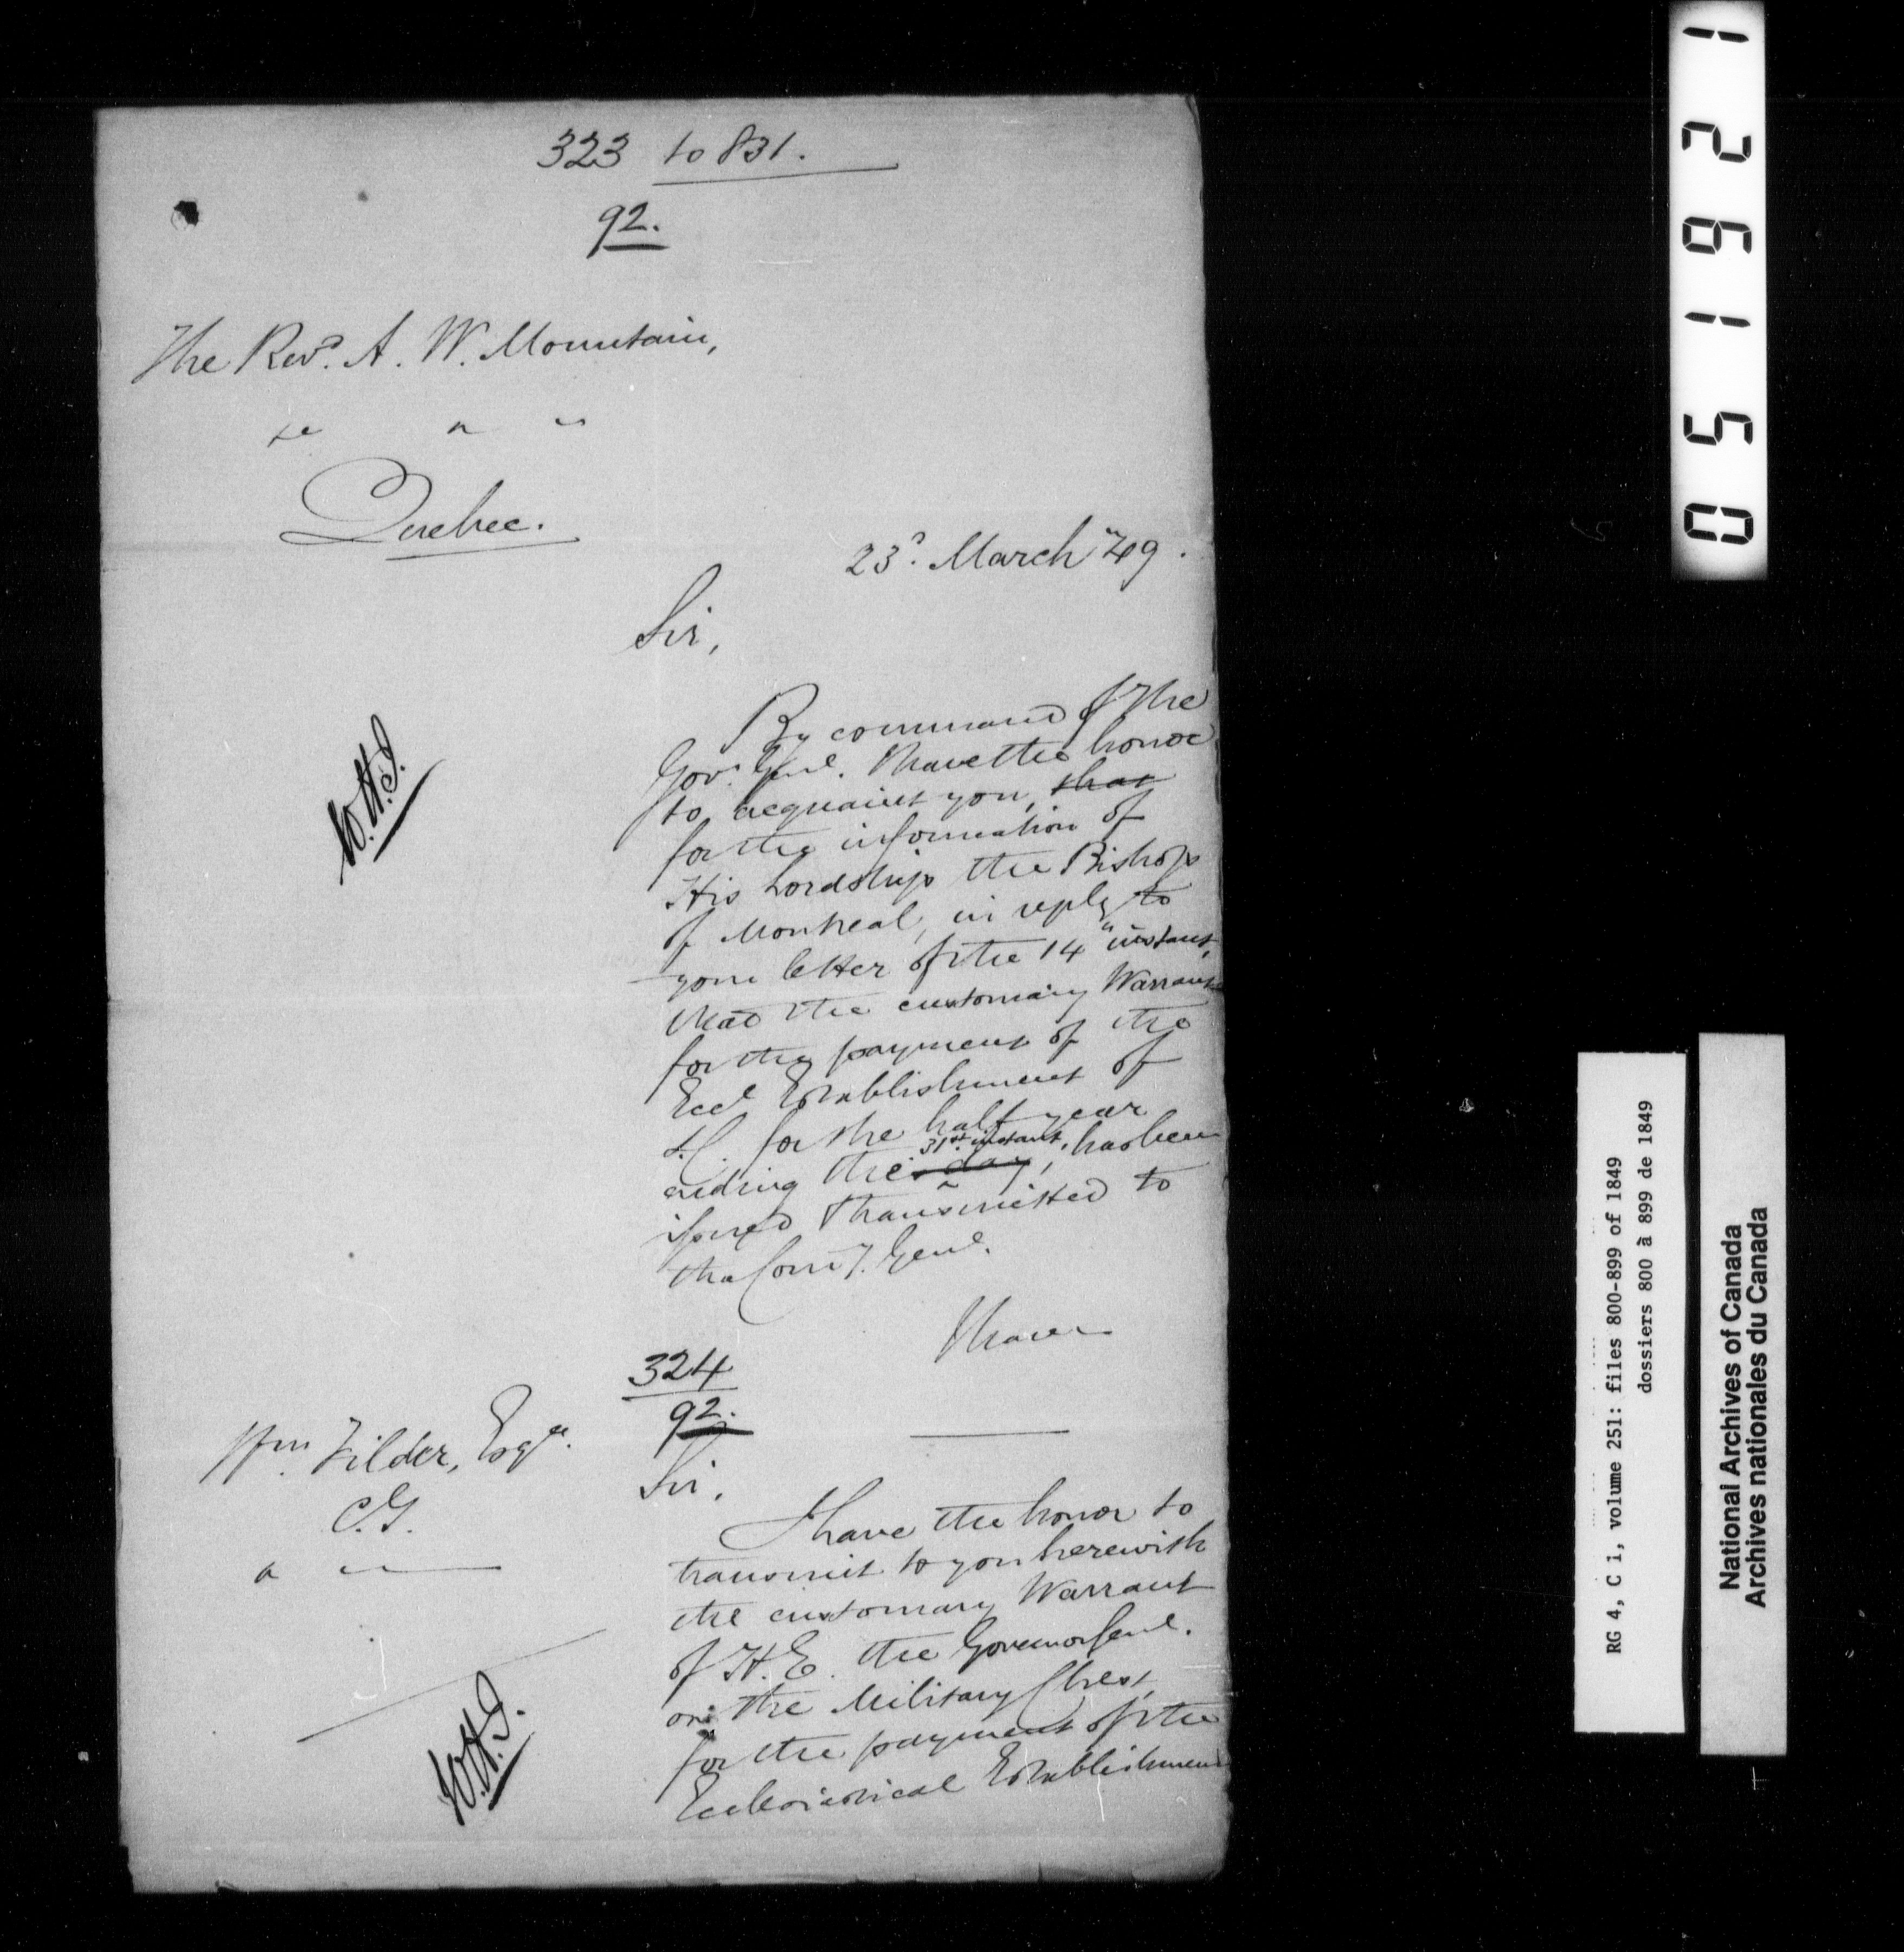 323 to 831.
92.
The Revd. A. W. Mountain,
&c &c &c
Quebec.
23d. March "49.
Sir,
By command of The
Govr. Genl. I have the honor
to acquaint you, that
for the information of
His Lordship the Bishop
of Montreal, in reply to
your letter of the 14" instant,
that the customary Warrant
for the payment of the
Eccl Establishment of
L.C. for the half year
ending the 31st instant, has been
issued & transmitted to
the Comy. Genl.
I have
W.H.G.
324
92.
Wm Filder, Esqre.
C.G.
Sir,
I have the honor to
transmit to you herewith
the customary Warrant
of H.E. the Governor Genl.
on the Military Chest,
for the payment of the
Ecclesiastical Establishment
W.H.G.
051921
RG 4, C 1, volume 251: files 800-899 of 1849
dossiers 800 à 899 de 1849
National Archives of Canada
Archives nationales du Canada